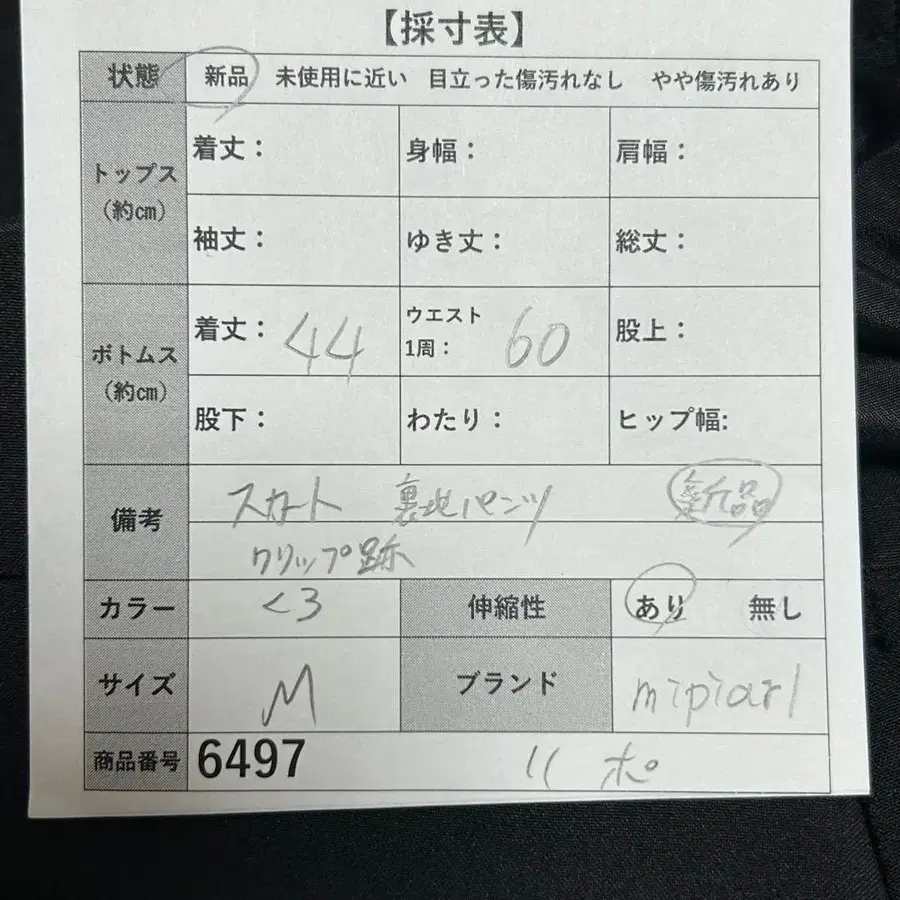 【採寸表】
状態 新品 未使用に近い 目立った傷汚れなし やや傷汚れあり
トップス
(約㎝)
着丈： 身幅： 肩幅：
袖丈： ゆき丈： 総丈：
ボトムス
(約㎝)
着丈： 44 ウエスト1周： 60 股上：
股下： わたり： ヒップ幅:
備考 スカート 裏地パンツ 新品
クリップ跡
カラー くろ 伸縮性 あり 無し
サイズ M ブランド mipiarl
商品番号 6497 リ ポ